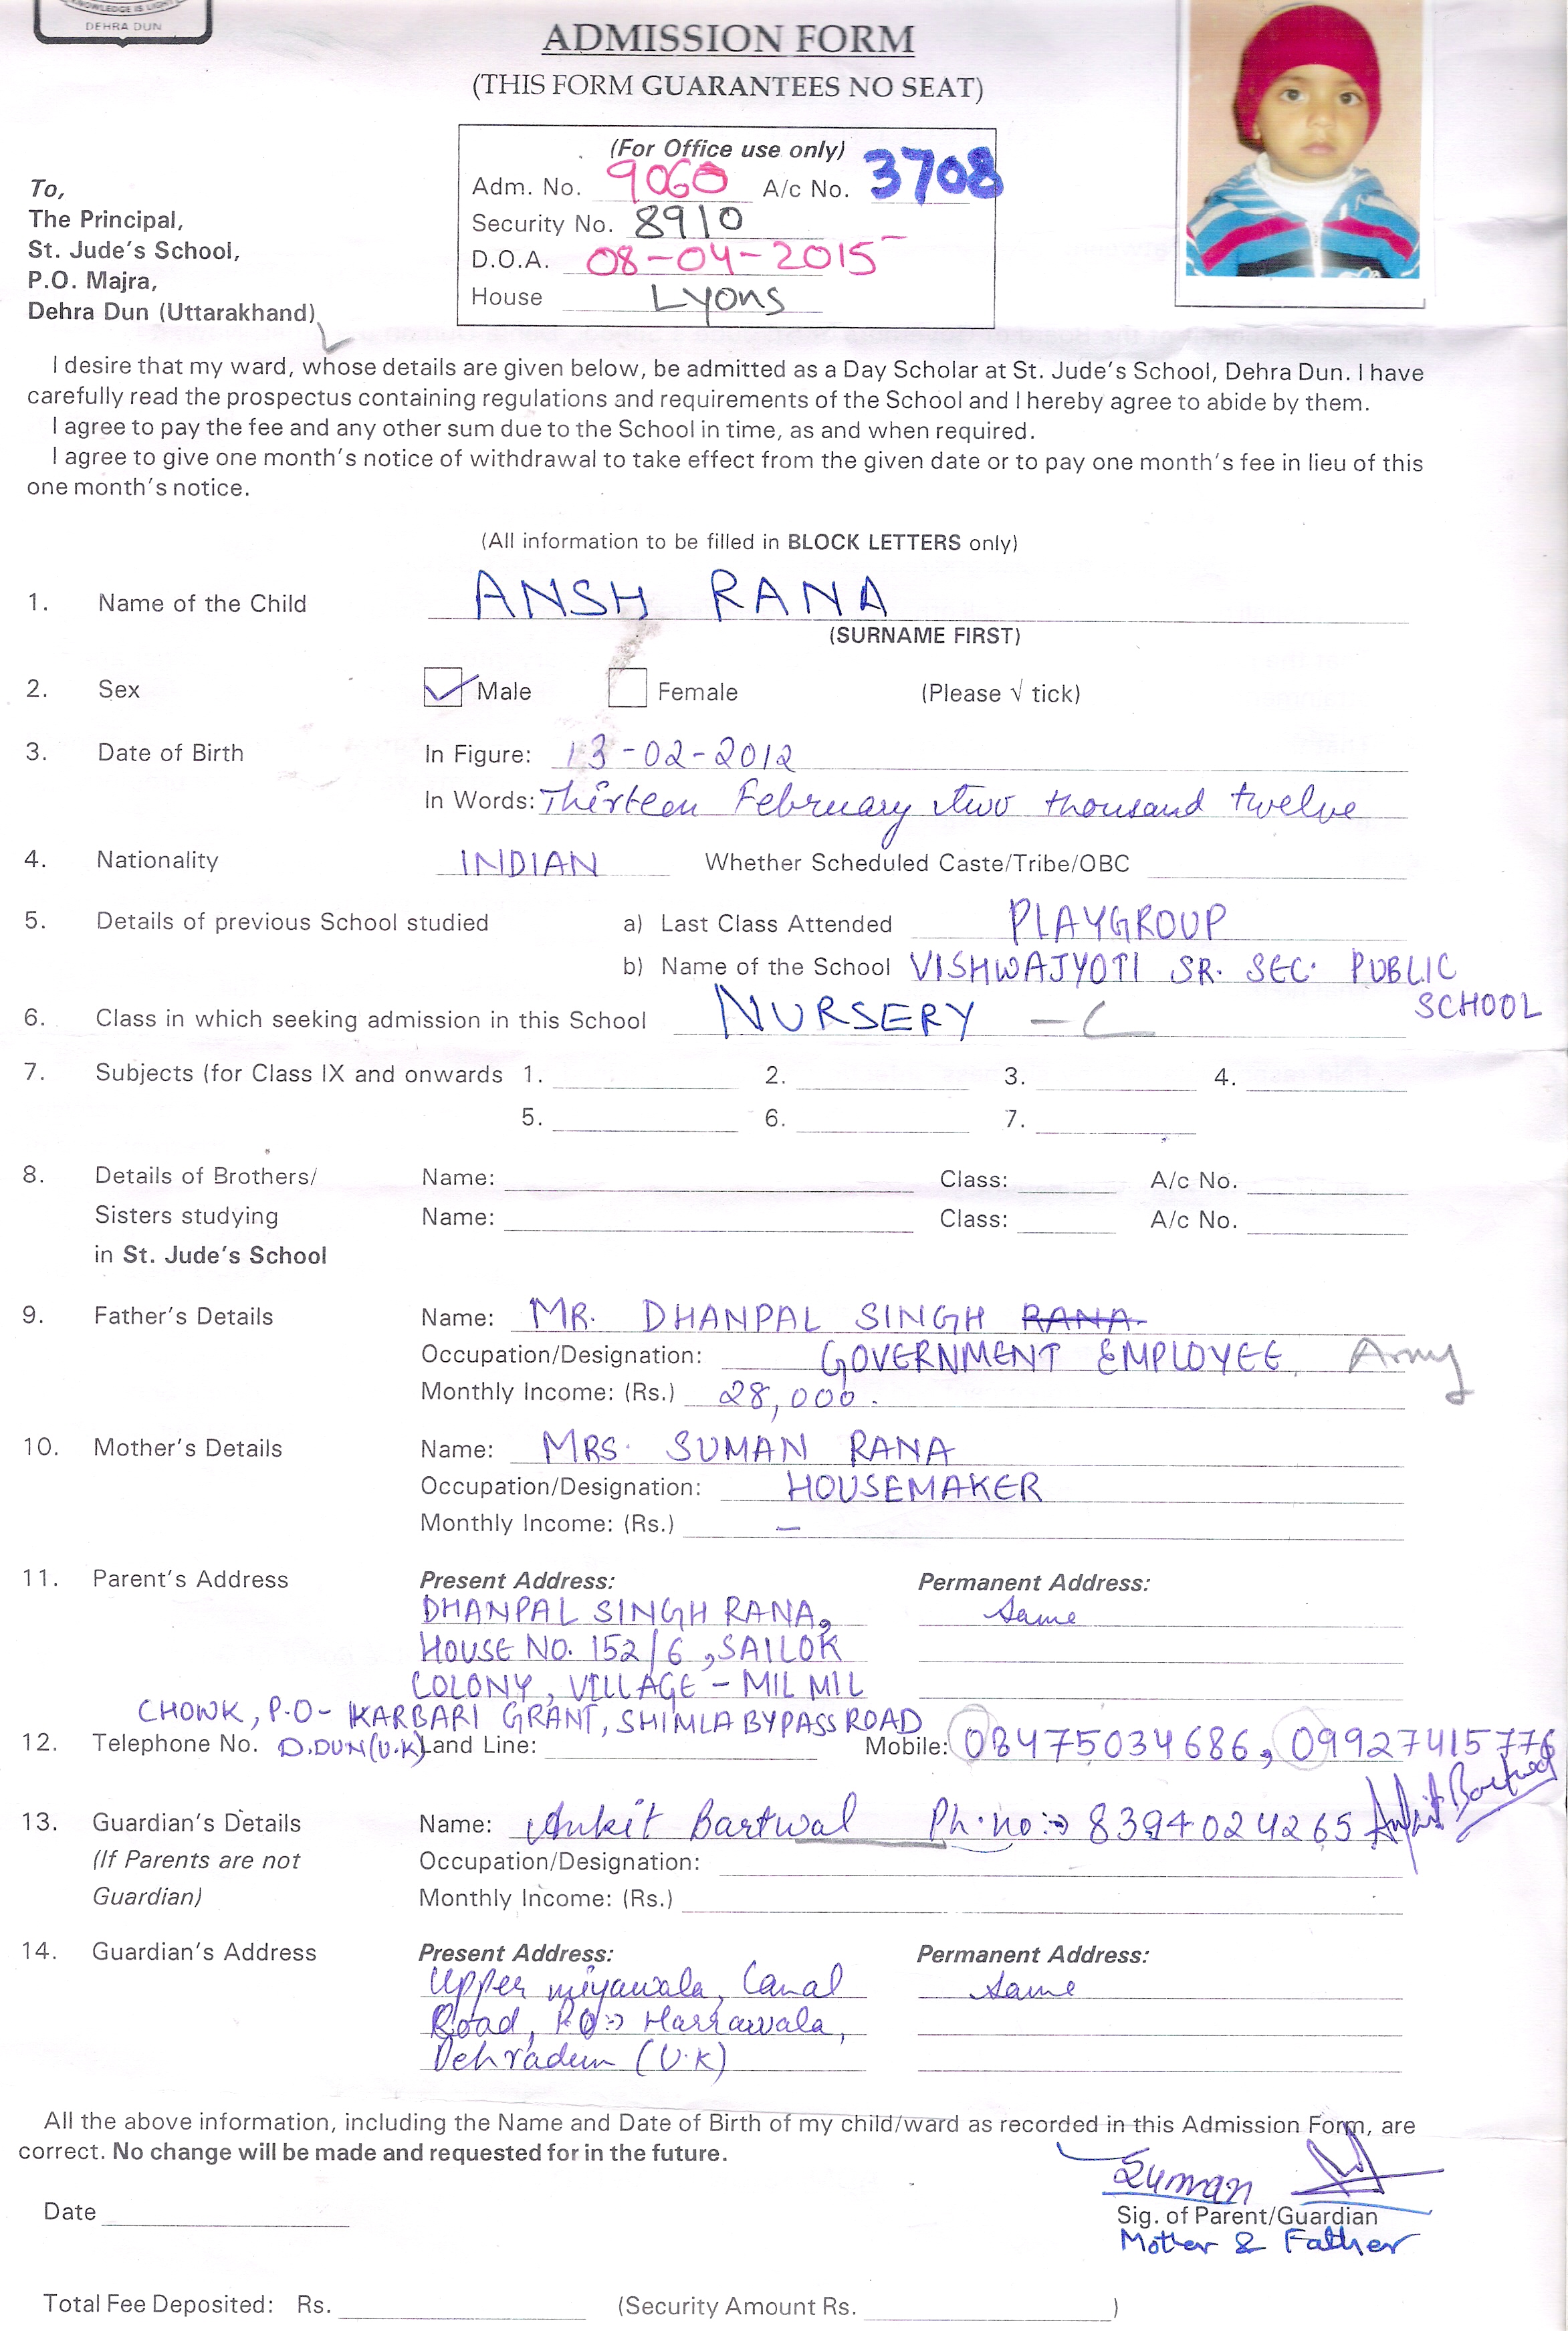 KNOWLEDGE IS LIGHT
DEHRA DUN
ADMISSION FORM
(THIS FORM GUARANTEES NO SEAT)
(For Office use only)
Adm. No. 9060 A/c No. 3708
Security No. 8910
D.O.A. 08-04-2015
House Lyons
To,
The Principal,
St. Jude's School,
P.O. Majra,
Dehra Dun (Uttarakhand)
I desire that my ward, whose details are given below, be admitted as a Day Scholar at St. Jude's School, Dehra Dun. I have
carefully read the prospectus containing regulations and requirements of the School and I hereby agree to abide by them.
I agree to pay the fee and any other sum due to the School in time, as and when required.
I agree to give one month's notice of withdrawal to take effect from the given date or to pay one month's fee in lieu of this
one month's notice.
(All information to be filled in BLOCK LETTERS only)
1. Name of the Child ANSH RANA
(SURNAME FIRST)
2. Sex Male Female (Please √ tick)
3. Date of Birth In Figure: 13-02-2012
In Words: Thirteen February two thousand twelve
4. Nationality INDIAN Whether Scheduled Caste/Tribe/OBC
5. Details of previous School studied a) Last Class Attended PLAYGROUP
b) Name of the School VISHWAJYOTI SR. SEC. PUBLIC
SCHOOL
6. Class in which seeking admission in this School NURSERY - C
7. Subjects (for Class IX and onwards 1. 2. 3. 4.
5. 6. 7.
8. Details of Brothers/ Name: Class: A/c No.
Sisters studying Name: Class: A/c No.
in St. Jude's School
9. Father's Details Name: MR. DHANPAL SINGH RANA.
Occupation/Designation: GOVERNMENT EMPLOYEE Army
Monthly Income: (Rs.) 28,000.
10. Mother's Details Name: MRS. SUMAN RANA
Occupation/Designation: HOUSEMAKER
Monthly Income: (Rs.) -
11. Parent's Address Present Address: Permanent Address:
DHANPAL SINGH RANA, Same
HOUSE NO. 152/6, SAILOK
COLONY, VILLAGE - MIL MIL
CHOWK, P.O- KARBARI GRANT, SHIMLA BYPASS ROAD
12. Telephone No. D.DUN(U.K) Land Line: Mobile: 08475034686, 09927415776
Ankit Bartwal
13. Guardian's Details Name: Ankit Bartwal Ph.no:→ 8394024265
(If Parents are not Occupation/Designation:
Guardian) Monthly Income: (Rs.)
14. Guardian's Address Present Address: Permanent Address:
Upper miyawala, Canal Same
Road, P.O:→ Harrawala,
Dehradun (U.K)
All the above information, including the Name and Date of Birth of my child/ward as recorded in this Admission Form, are
correct. No change will be made and requested for in the future.
Suman
Date Sig. of Parent/Guardian
Mother & Father
Total Fee Deposited: Rs. (Security Amount Rs. )